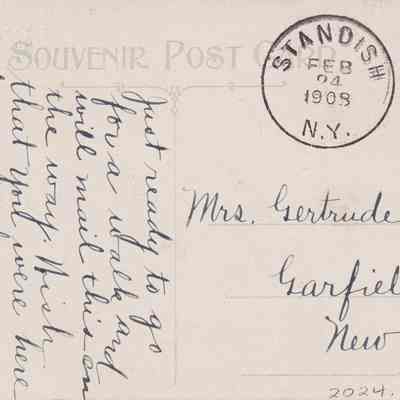 SOUVENIR POST CARD
STANDISH
FEB
24
1908
N.Y.
Just ready to go
for a walk and
will mail this on
the way. Wish
that you were here
Mrs. Gertrude
Garfiel
New
2024.